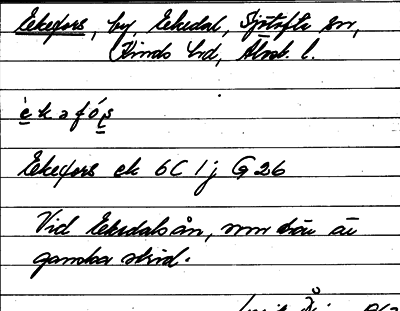 Ekefors, by, Ekedal, Sjötofta sn,
Kinds hd, Älvsb. l.
èkəfó̱ṣ
Ekefors ek 6C 1j G 26
Vid Ekedalsån, som där är
ganska strid.